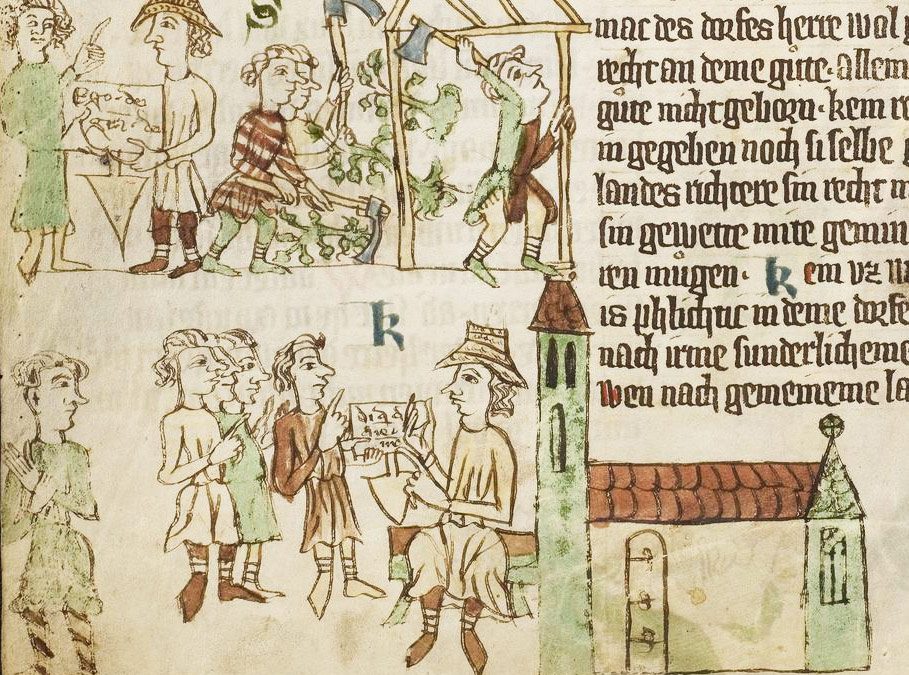 S
Ego
K
mac des dorfes herre wol
recht an deme gůte· allein
gůte nicht geborn· kein re
in gegeben noch si selbe g
landes richtere sin recht
sin gewette mite gemin
ren můgen· K ein vz
is phlichtic in deme dorfe
nach irme sunderlicheme
wen nach gemeineme la